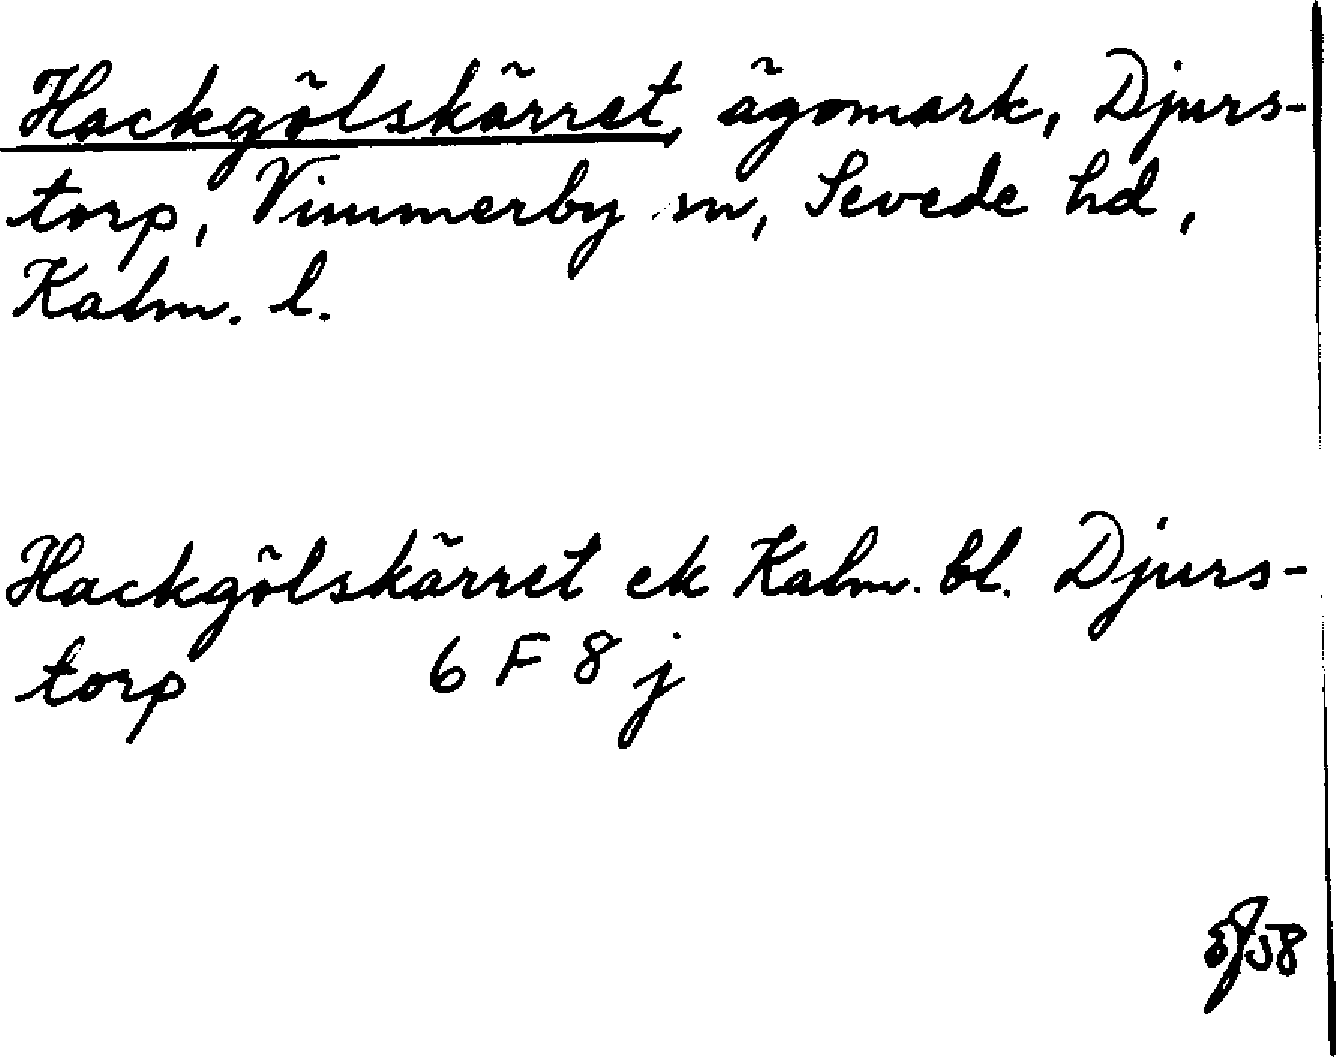 Hackgölskärret, ägomark, Djurs-
torp, Vimmerby sn, Sevede hd,
Kalm. l.
Hackgölskärret ek Kalm. bl. Djurs-
torp 6 F 8 j